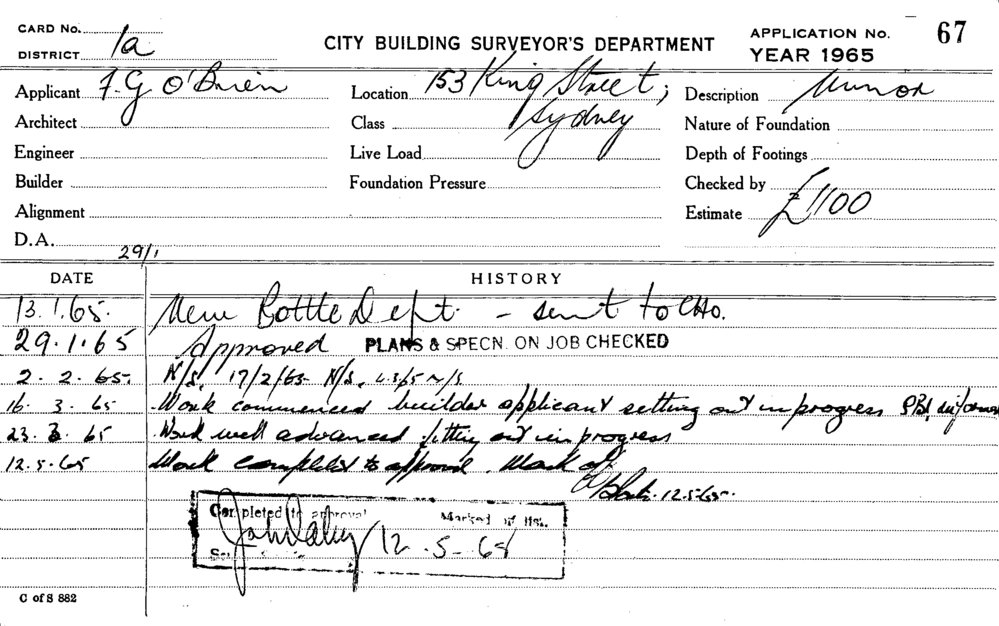 CARD No.
DISTRICT 1a
CITY BUILDING SURVEYOR'S DEPARTMENT
APPLICATION No. 67
YEAR 1965
Applicant F. G O'Brien
Location 153 King Street, Sydney
Description Minor
Architect
Class
Nature of Foundation
Engineer
Live Load
Depth of Footings
Builder
Foundation Pressure
Checked by
Alignment
Estimate £1100
D.A.
29/1
DATE HISTORY
13.1.65. New Bottle Dept. - sent to CHO.
29.1.65 Approved PLANS & SPECN. ON JOB CHECKED
2.2.65. N/S. 17/2/65 N/S. 4.3/65 N/S
16.3.65 Work commenced builder applicant setting out in progress
23.3.65 Work well advanced fitting out in progress
12.5.65 Work complete to approval. Mark off
12.5.65.
Completed to approval Marked off list.
12.5-65
C of S 882